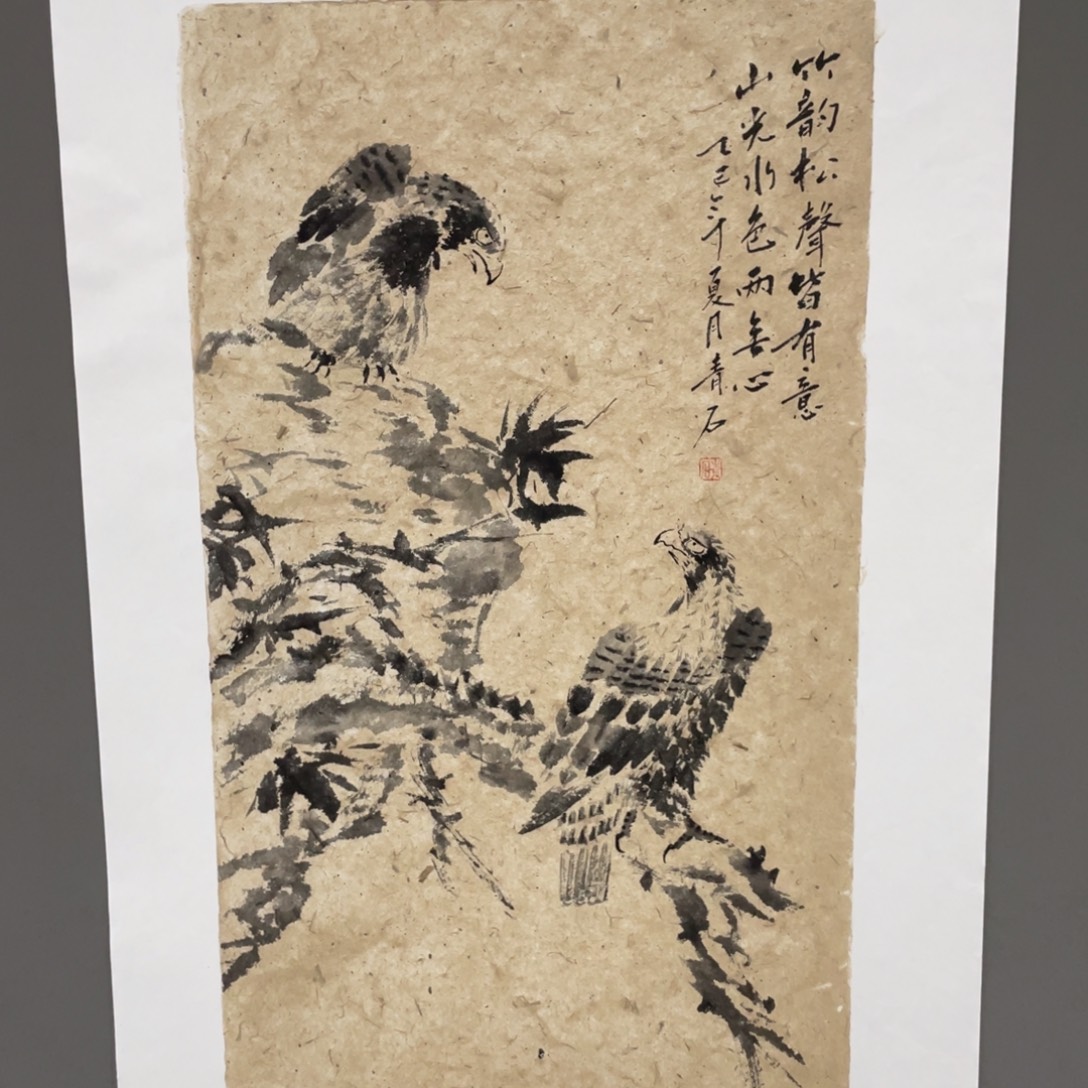 竹韵松聲皆有意
山光水色兩無心
乙巳年夏月青石